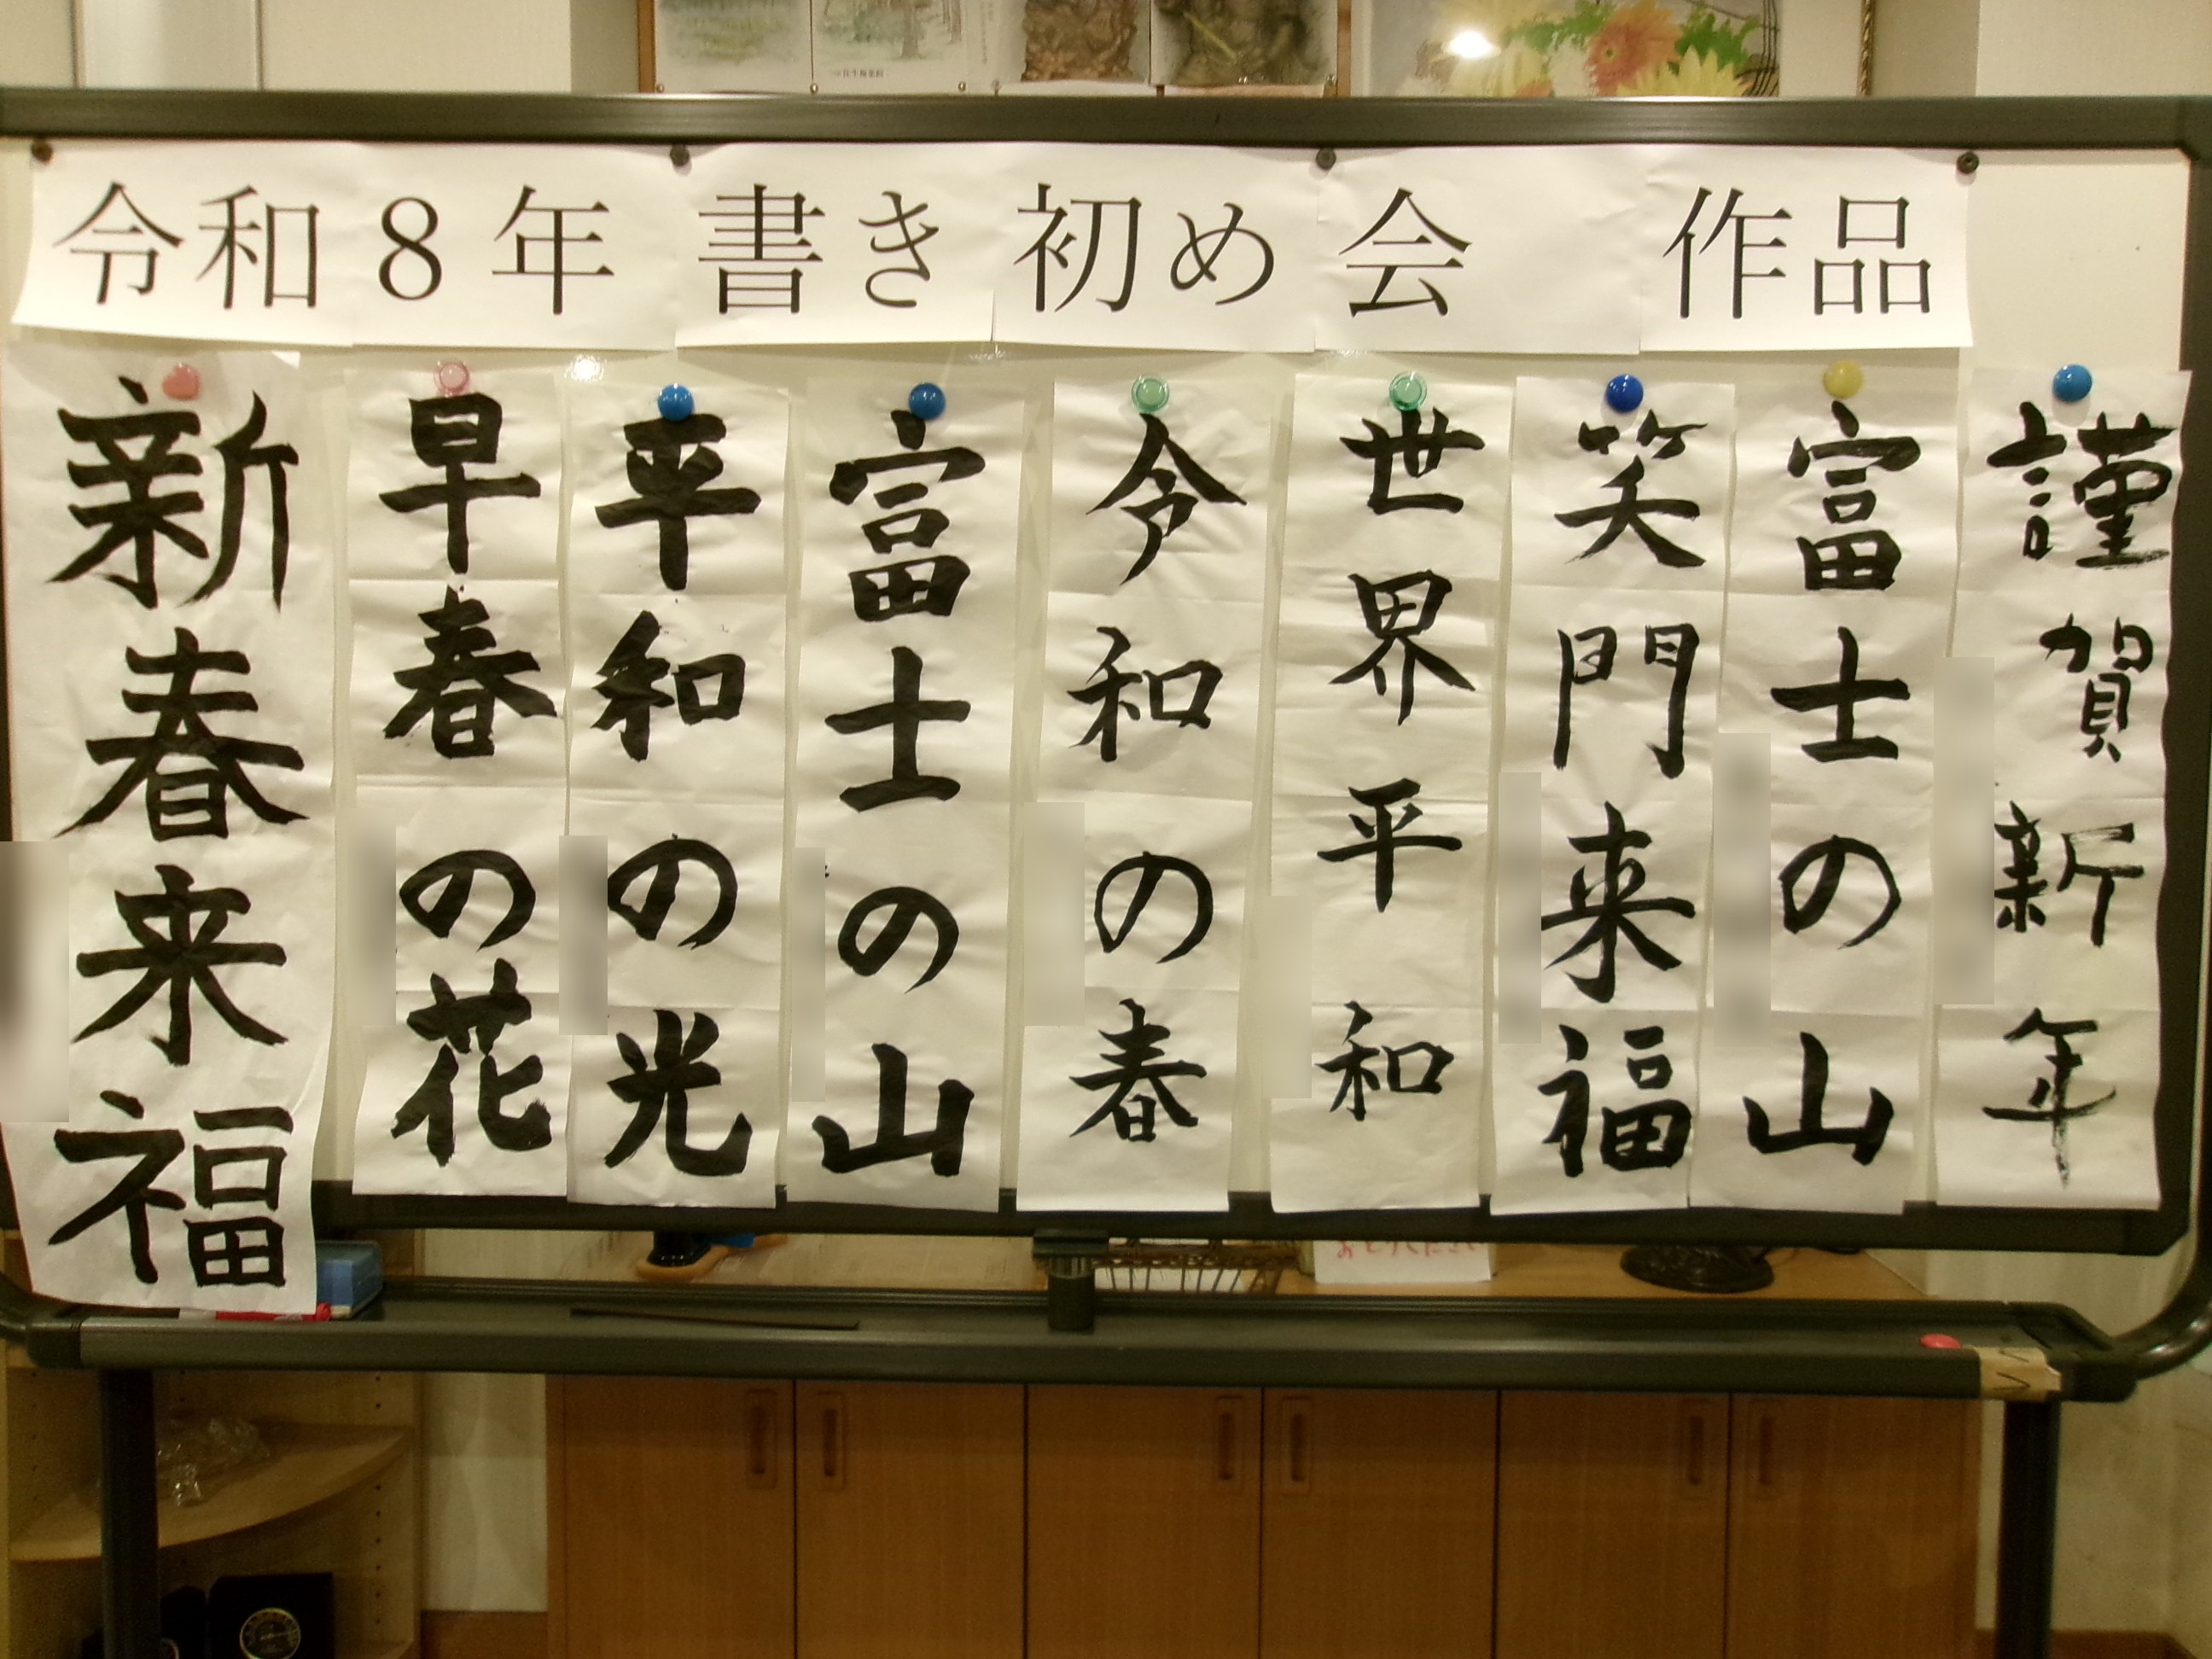 令和8年 書き初め会 作品
謹賀新年
富士の山
笑門来福
世界平和
令和の春
富士の山
平和の光
早春の花
新春来福